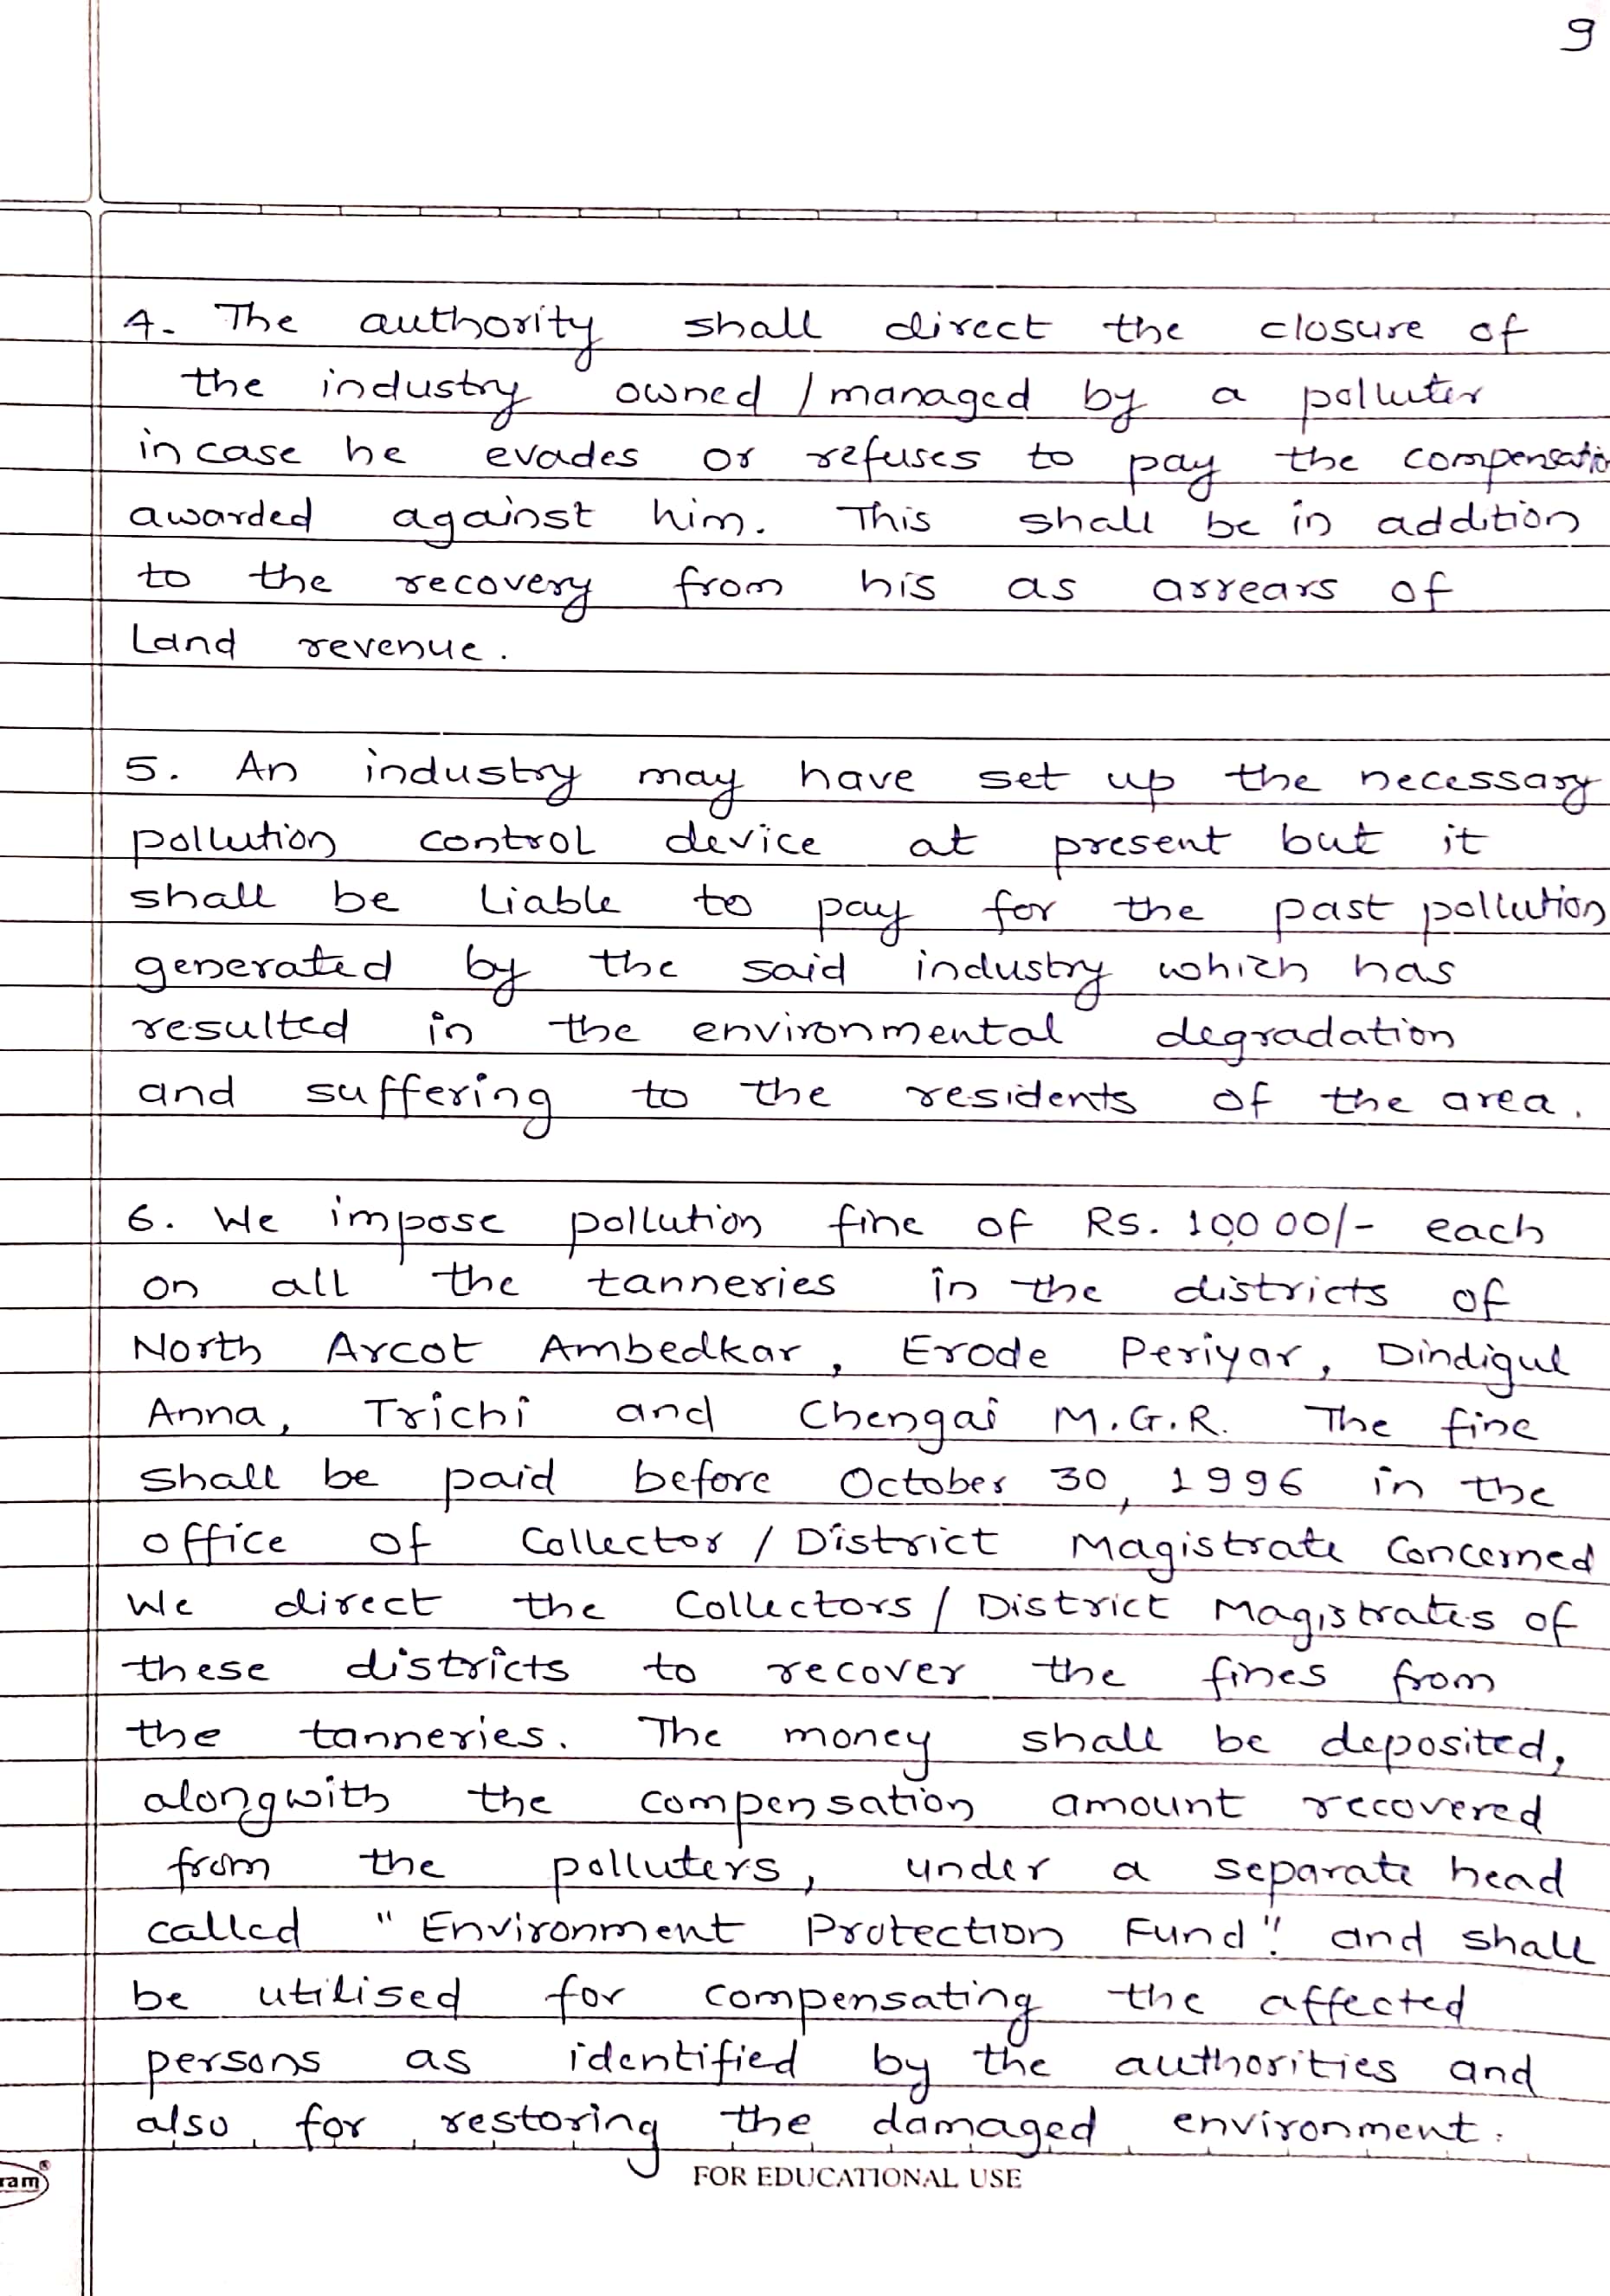 9
4. The authority shall direct the closure of
the industry owned / managed by a polluter
in case he evades or refuses to pay the compensatio
awarded against him. This shall be in addition
to the recovery from his as arrears of
Land revenue.
5. An industry may have set up the necessary
pollution control device at present but it
shall be liable to pay for the past pollution
generated by the said industry which has
resulted in the environmental degradation
and suffering to the residents of the area.
6. We impose pollution fine of RS. 10,000/- each
on all the tanneries in the districts of
North Arcot Ambedkar, Erode Periyar, Dindigul
Anna, Trichi and Chengai M.G.R. The fine
shall be paid before October 30, 1996 in the
office of Collector / District Magistrate Concerned
We direct the Collectors / District Magistrates of
these districts to recover the fines from
the tanneries. The money shall be deposited,
alongwith the compensation amount recovered
from the polluters, under a separate head
called "Environment Protection Fund". and shall
be utilised for compensating the affected
persons as identified by the authorities and
also for restoring the damaged environment.
ram®
FOR EDUCATIONAL USE